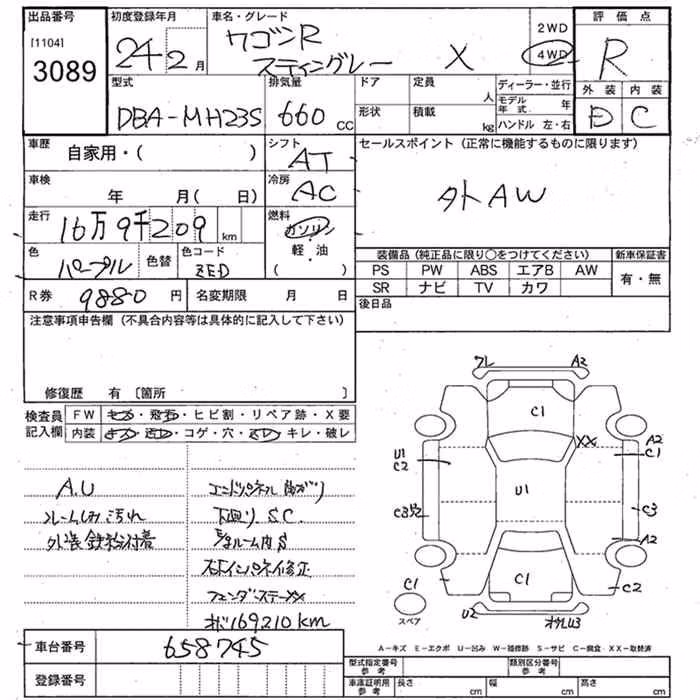 出品番号
[1104]
3089
初度登録年月
24年2月
車名・グレード
ワゴンR
スティングレー X
2WD
4WD
評価点
R
外装 内装
D C
型式
DBA-MH23S
排気量
660 CC
ドア
形状
定員
人
積載
kg
ディーラー・並行
モデル年式 年
ハンドル 左・右
車歴
自家用・( )
車検
年 月( 日)
走行
16万9千209 km
色
パープル
色替
色コード
ZED
シフト
AT
冷房
AC
燃料
ガソリン
軽・油
( )
セールスポイント (正常に機能するものに限ります)
外AW
装備品 (純正品に限り○をつけてください)
PS PW ABS エアB AW
SR ナビ TV カワ
新車保証書
有・無
後日品
R券 9880 円
名変期限 月 日
注意事項申告欄 (不具合内容等は具体的に記入して下さい)
修復歴 有 〔箇所 〕
検査員記入欄
FW キズ・飛石・ヒビ割・リペア跡・X要
内装 キズ・汚レ・コゲ・穴・スレ・キレ・破レ
A.U
フレームしみ汚れ
外装鉄粉付着
エンドパネル曲がり
下廻りS.C
右インパネ修正
フェンダーステーXX
オド169210km
フレ A2
C1
XX
A2
C1
U1
C2
U1
C3
C3
A2
C1
C1
C2
U2
U3
スペア
A-キズ E-エクボ U-凹み W-補修跡 S-サビ C-腐食 XX-取替済
車台番号
658745
登録番号
型式指定番号 参考
類別区分番号 参考
車庫証明用 参考
長さ cm
幅 cm
高さ cm